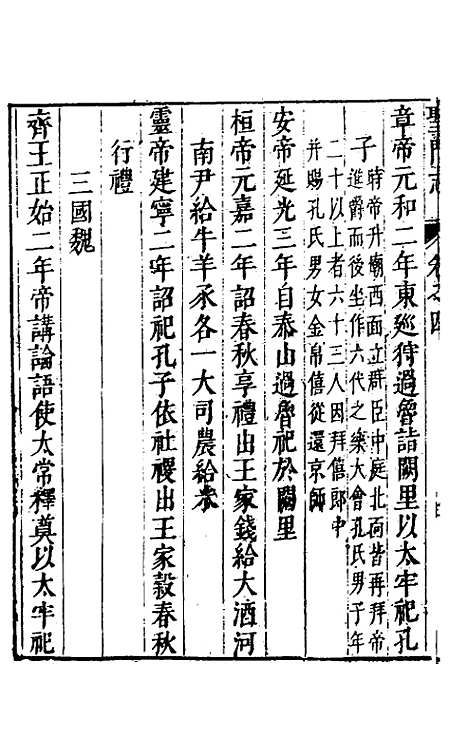 聖門志 卷之四
章帝元和二年東廵狩過魯詣闕里以太牢祀孔
子
時帝升廟西面立羣臣中庭北面皆再拜帝
進爵而後坐作六代之樂大會孔氏男子年
二十以上者六十三人因拜僖郎中
并賜孔氏男女金帛僖從還京師
安帝延光三年自泰山過魯祀於闕里
桓帝元嘉二年詔春秋享禮出王家錢給大酒河
南尹給牛羊豕各一大司農給米
靈帝建寧二年詔祀孔子依社稷出王家穀春秋
行禮
三國魏
齊王正始二年帝講論語使太常釋奠以太牢祀